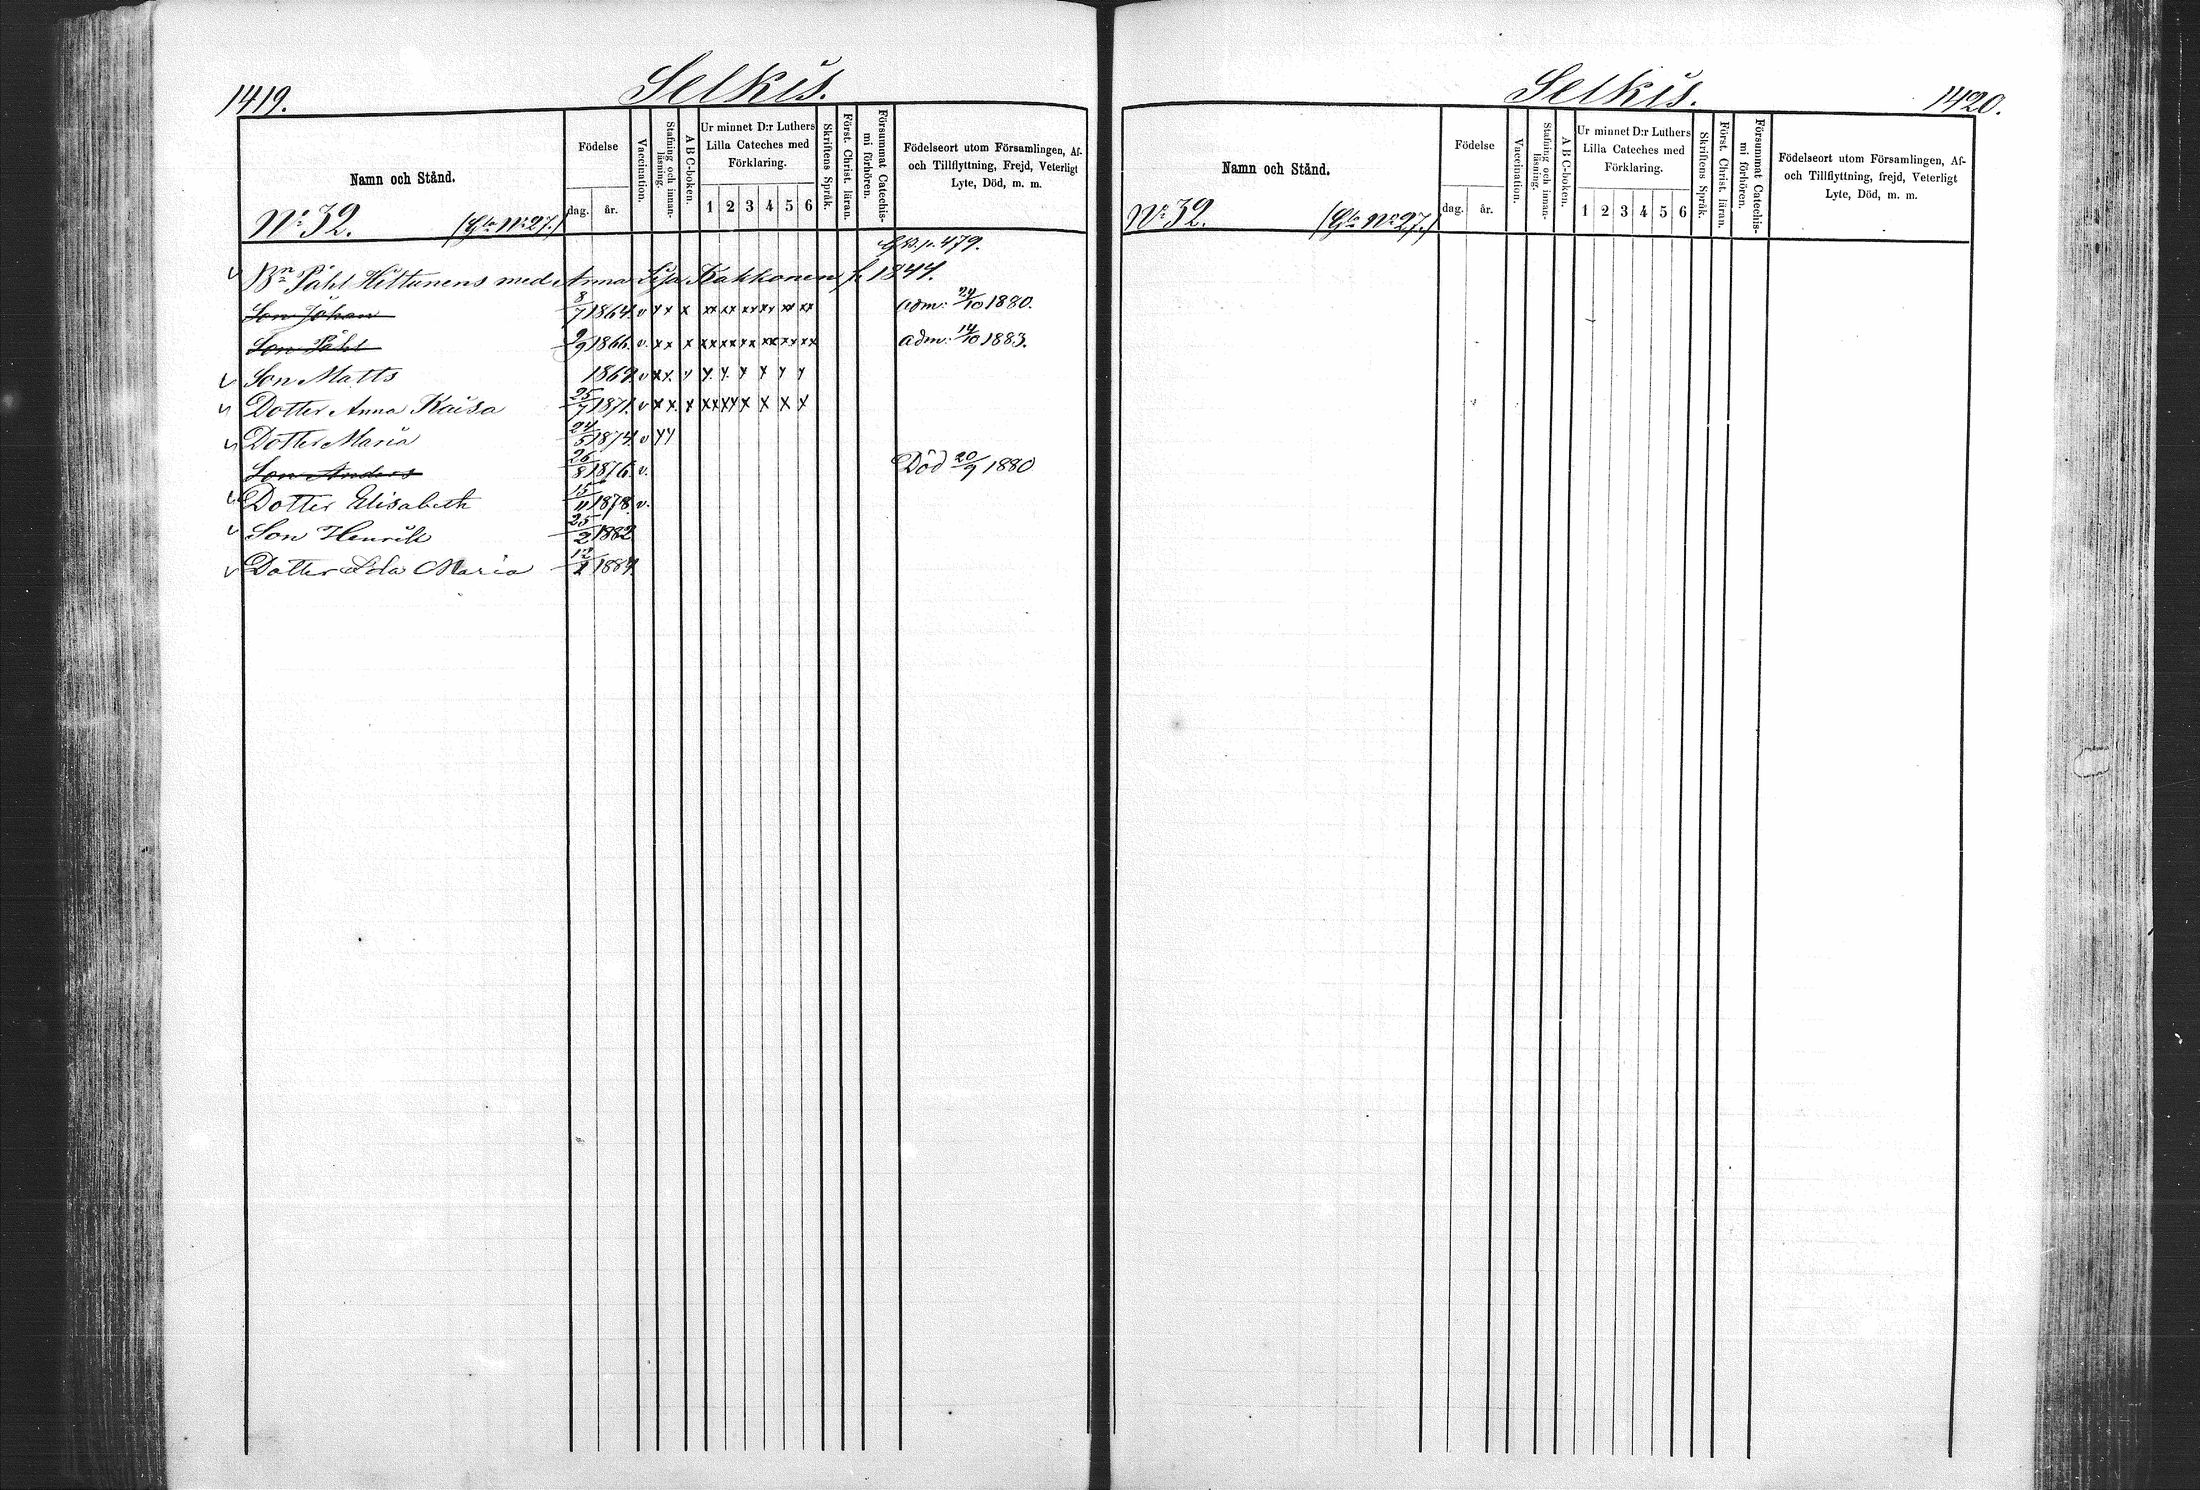 1419.
Selkis.
Namn och Stånd.
Födelse
dag.
år.
Vaccination.
Stafning och innanläsning.
A B C-boken.
Ur minnet D:r Luthers
Lilla Cateches med
Förklaring.
1 2 3 4 5 6
Skriftens Språk.
Först. Christ. läran.
Försummat Catechismi förhören.
Födelseort utom Församlingen, Af-
och Tillflyttning, Frejd, Veterligt
Lyte, Död, m. m.
No 32. (Gla No 27.)
p. 479.
v Bn Påhl Hiltunens med Anna Lisa Kakkonen f. 1844.
Son Johan 8/7 1864. v x x x xx xx xx xx xx xx adm: 24/10 1880.
Son Påhl 9/9 1866. v. x x x xx xx xx xx xx xx adm: 14/10 1883.
v Son Matts 1869. v x x. v x x x x x x
v Dotter Anna Kaisa 25/7 1871. v x x. x xx xx x x x x
v Dotter Maria 24/5 1874. v x x
Son Anders 26/8 1876. v. Död 20/9 1880
v Dotter Elisabeth 15/11 1878. v.
v Son Henrik 25/2 1882
v Dotter Ida Maria 12/2 1884.
Selkis.
1420.
Namn och Stånd.
Födelse
dag.
år.
Vaccination.
Stafning och innanläsning.
A B C-boken.
Ur minnet D:r Luthers
Lilla Cateches med
Förklaring.
1 2 3 4 5 6
Skriftens Språk.
Först. Christ. läran.
Försummat Catechismi förhören.
Födelseort utom Församlingen, Af-
och Tillflyttning, frejd, Veterligt
Lyte, Död, m. m.
No 32. (Gla No 27.)